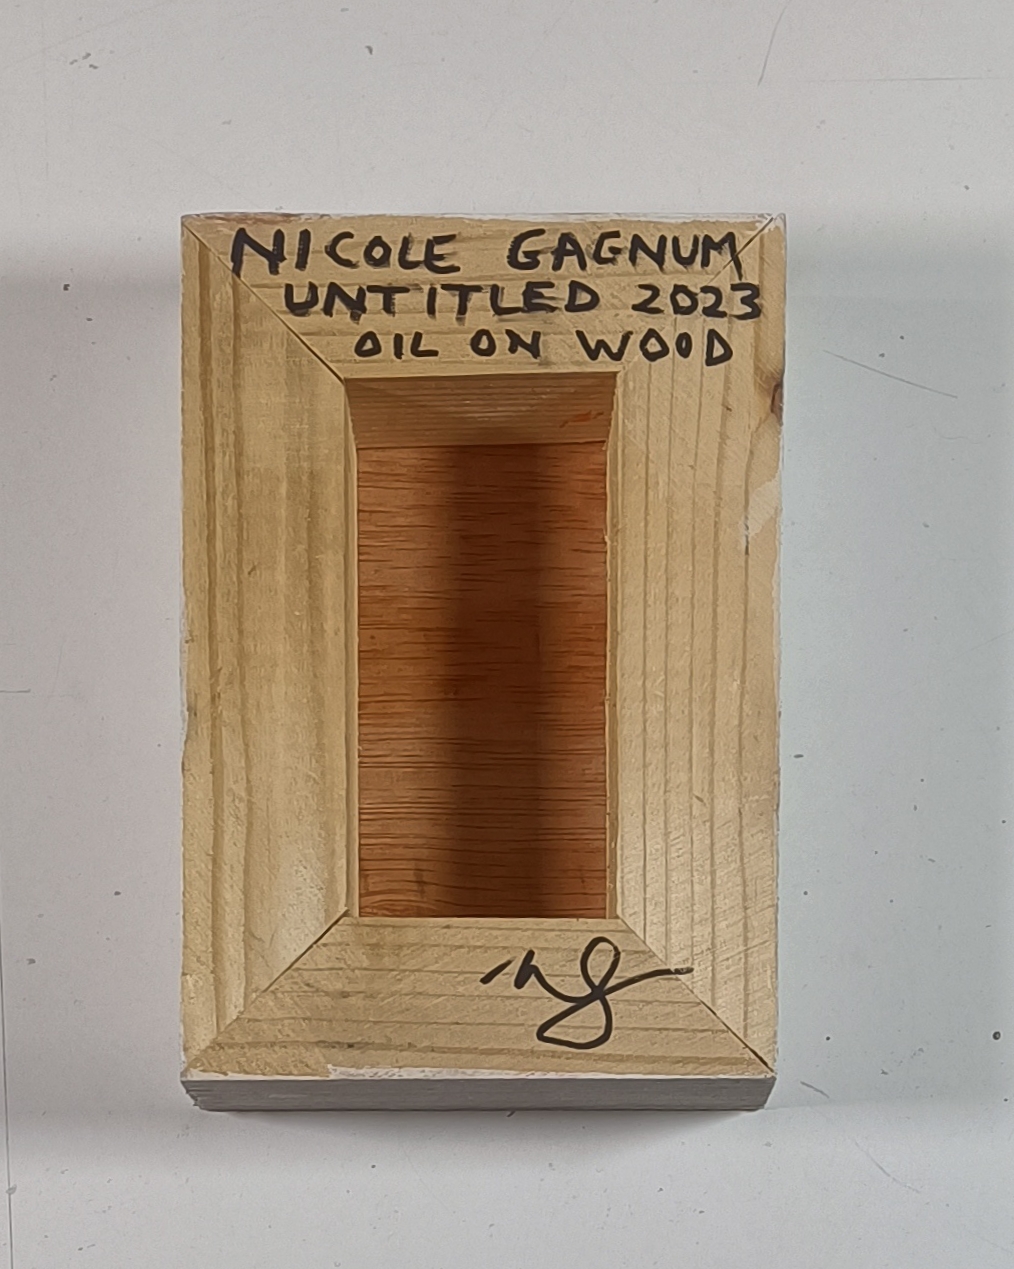 NICOLE GAGNUM
UNTITLED 2023
OIL ON WOOD
ng